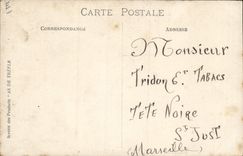 CARTE POSTALE
CORRESPONDANCE
ADRESSE
Monsieur
Tridon Er Tabacs
TETE NOIRE
St JUST
Marseille
Société des Produits "AS DE TRÈFLE"